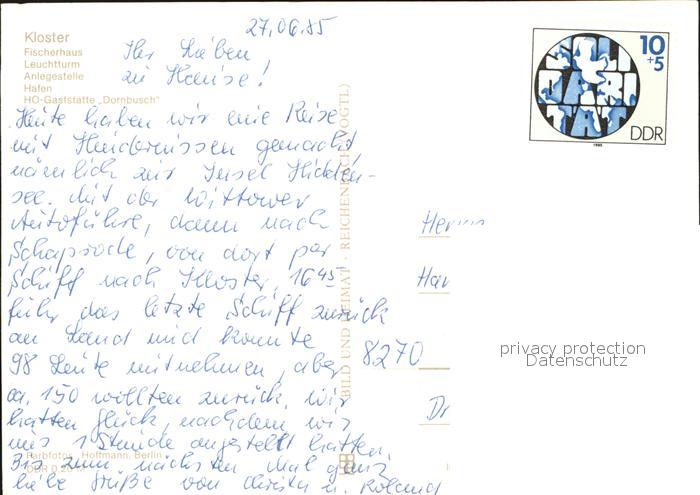 27.06.85
Kloster
Fischerhaus
Leuchtturm
Anlegestelle
Hafen
HO-Gaststätte „Dornbusch"
Ihr Lieben
zu Hause!
Heute haben wir eine Reise
mit Hindernissen gemacht
nämlich zur Insel Hidden-
see. Mit der Wittower
Autofähre, dann nach
Schaprode, von dort per
Schiff nach Kloster, 16 45
fuhr das letzte Schiff zurück
an Land und konnte
98 Leute mitnehmen, aber
ca. 150 wollten zurück. Wir
hatten Glück, nachdem wir
uns 1 Stunde angestellt hatten.
Bis zum nächsten Mal ganz
liebe Grüße von Christa u. Roland
Farbfotos: Hoffmann, Berlin
BILD UND HEIMAT · REICHENBACH (VOGTL)
SOLIDARITÄT
10
+5
DDR
1985
Herrn
Har
8270
Dr
privacy protection
Datenschutz